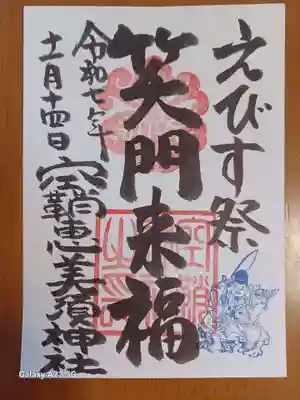 えびす祭
笑門来福
令和七年
十一月十四日
空鞘恵美須神社
Galaxy A22 5G